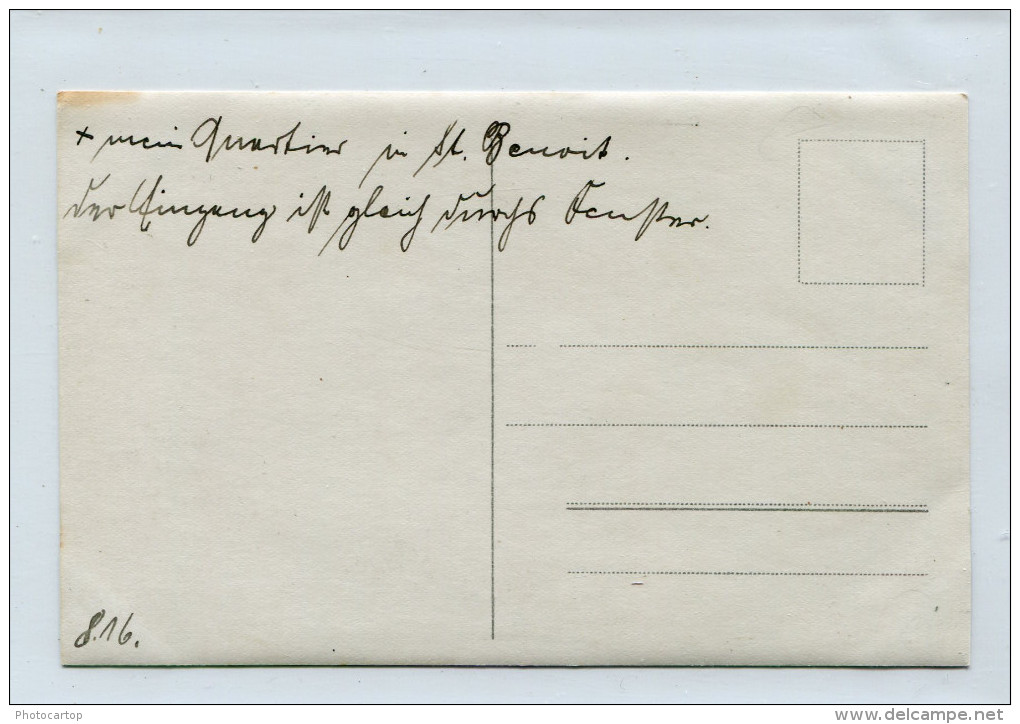 + mein Quartier in St. Benoit.
der Eingang ist gleich durchs Fenster.
8.16.
Photocartop
www.delcampe.net